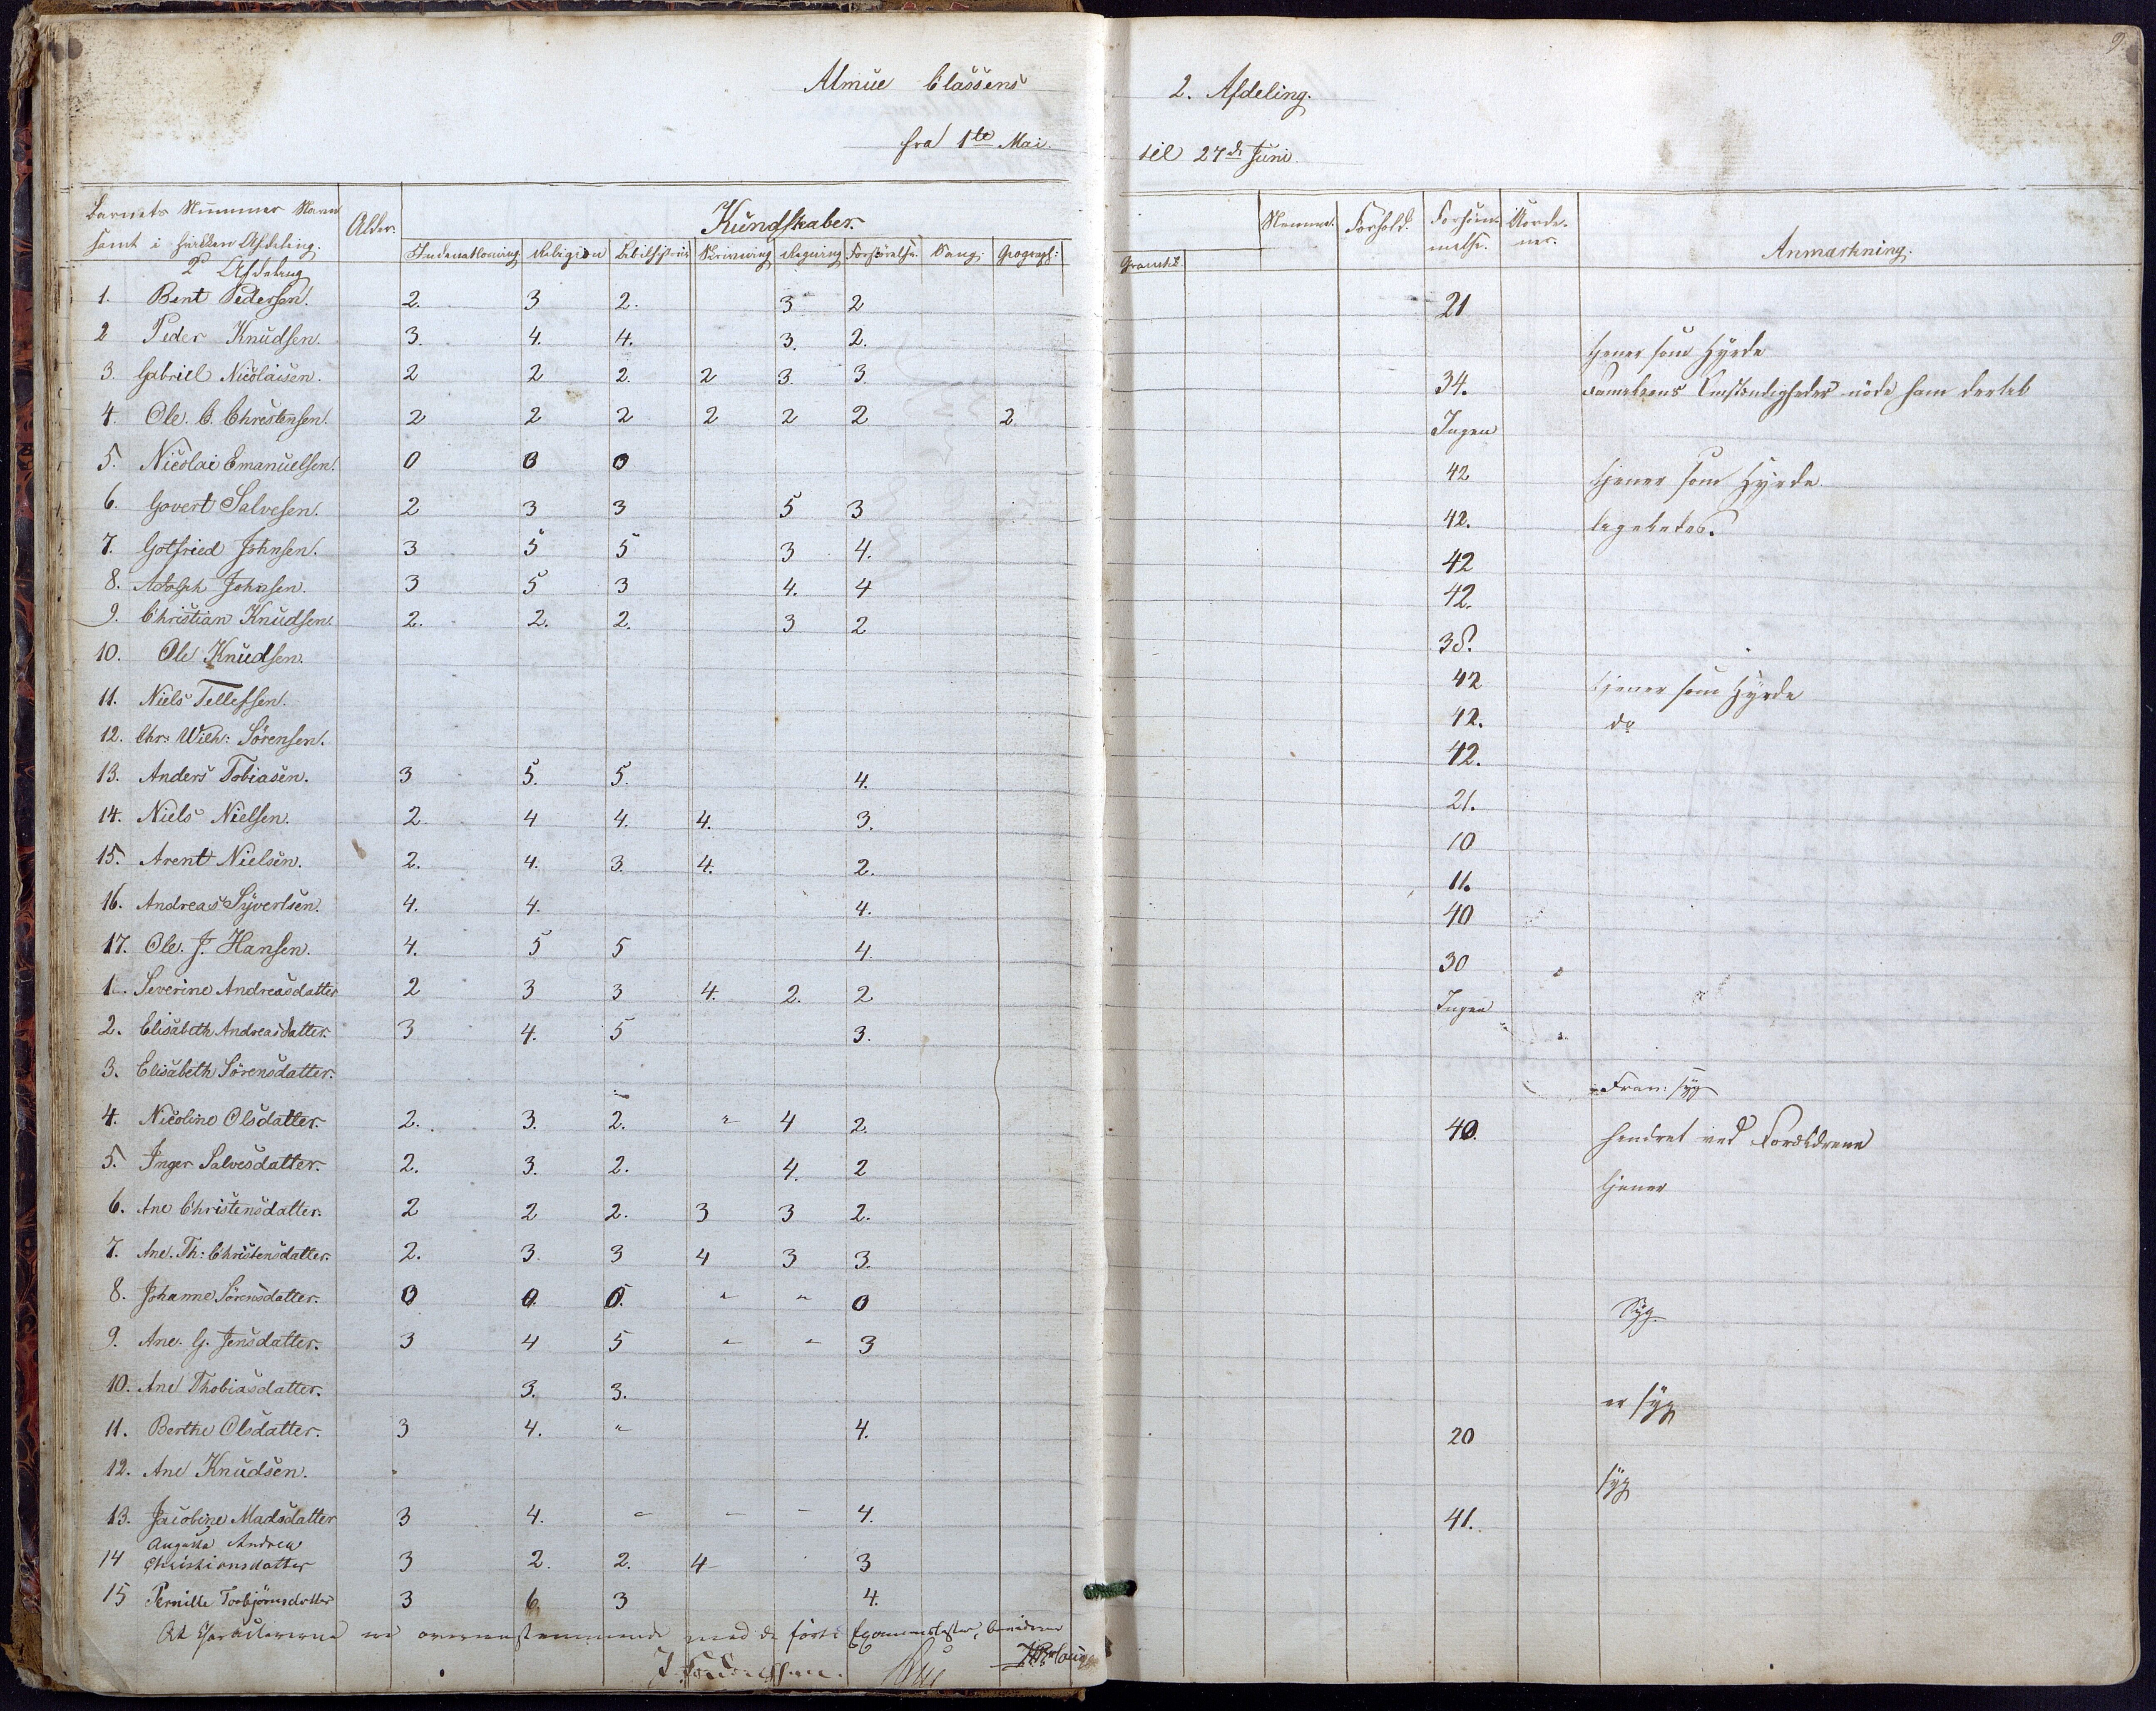 9.
Almue Classens 2. Afdeling.
fra 1te Mai. til 27de Juni.
Barnets Nummer Navn samt i hvilken Afdeling. Alder. Kundskaber. Nemme. Forhold. Forsømmelse. Anmærkning.
Indenadlæsning Religion Bibelhistorie Skrivning Regning Sang. Geograph:
2 Afdeling
1. Bent Pedersen. 2. 3 2. 3 2 21
2 Peder Knudsen. 3. 4. 4. 3. 2. tjener som Hyrde
3. Gabriel Nicolaisen. 2 2 2. 2 3. 3. 34. Omstændigheder
4. Ole. C. Christensen. 2 2 2 2 2 2 2 Ingen
5. Nicolai Emanuelsen. 0 0 0 42 tjener som Hyrde
6. Govert Salvesen. 2 3 3 5 3 42. ligeledes.
7. Gotfried Johnsen. 3 5 5 3 4. 42
8. Adolph Johnsen. 3 5 3 4. 4 42.
9. Christian Knudsen. 2. 2. 2. 3 2 38.
10. Ole Knudsen. 42 tjener som Hyrde
11. Niels Tellefsen. 42. do
12. Chr: Wilh: Sörensen. 42.
13. Anders Tobiasen. 3 5. 5. 4. 21.
14. Niels Nielsen. 2. 4 4. 4. 3. 10
15. Arent Nielsen. 2. 4. 3. 4. 2. 11.
16. Andreas Syvertsen. 4. 4. 4. 40
17. Ole. J. Hansen. 4. 5 5 4. 30
1. Severine Andreasdatter 2 3 3 4. 2. 2 Ingen
2. Elisabeth Andreasdatter. 3 4. 5 3.
3. Elisabeth Sörensdatter. syg
4. Nicoline Olsdatter. 2. 3. 2. " 4 2. 40. hindret ved Forældrene
5. Inger Salvesdatter. 2. 3. 2. 4. 2 tjener
6. Ane Christensdatter. 2 2 2. 3 3 2.
7. Ane. Th: Christensdatter. 2. 3. 3 4 3 3.
8. Johanne Sörensdatter. 0 0. 0. " " 0 Syg
9. Ane. G. Jensdatter. 3 4 5 " " 3
10. Ane Thobiasdatter. 3. 3. er syg
11. Berthe Olsdatter. 3 4. " 4. 20
12. Ane Knudsen. syg
13. Jacobine Madsdatter 3 4. - - - 4. 41.
Augusta Andrea
14 Christiansdatter 3 2. 2. 4 3
15 Pernille Torbjörnsdatter 3 6 3 4.
At overensstemmende med de förte